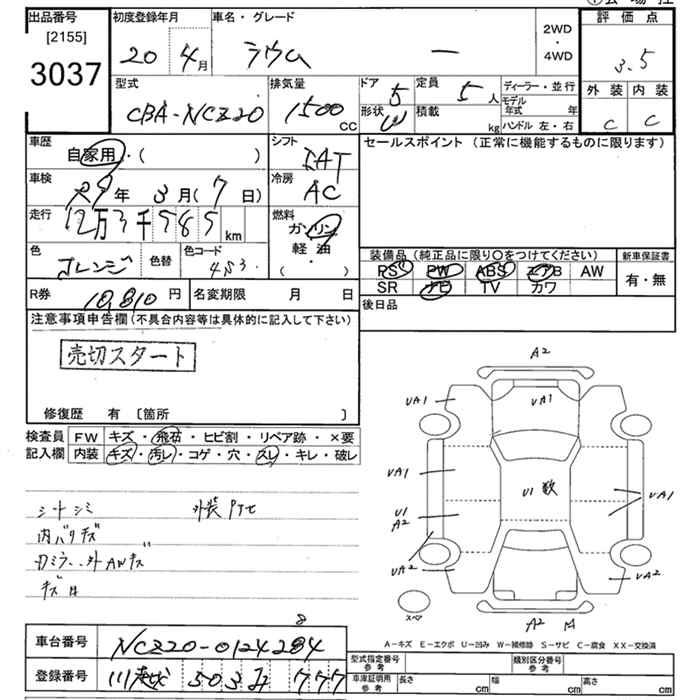 出品番号
[2155]
3037
初度登録年月
20 4月
車名・グレード
ラウム ー
2WD
・
4WD
評価点
3.5
外装 内装
C C
型式
CBA-NCZ20
排気量
1500 CC
ドア 5
形状 W
定員 5 人
積載 kg
ディーラー・並行
モデル年式 年
ハンドル 左・右
車歴
自家用・( )
シフト
IAT
車検
29年 3月( 7日)
冷房
AC
走行
12万3千585 km
燃料
ガソリン
軽・油
( )
色
オレンジ
色替
色コード
4S3.
R券 10,810円
名変期限 月 日
セールスポイント(正常に機能するものに限ります)
装備品(純正品に限り○をつけてください)
PS PW ABS エアB AW
SR ナビ TV カワ
新車保証書
有・無
後日品
注意事項申告欄(不具合内容等は具体的に記入して下さい)
売切スタート
修復歴 有 [箇所 ]
検査員記入欄
FW キズ・飛石・ヒビ割・リペア跡・×要
内装 キズ・汚レ・コゲ・穴・スレ・キレ・破レ
シートシミ 外装
内バリキズ
ミラー、外AWキズ
A2
UA1 UA1
UA1
U1 数
UA1
U1
A2
UA2 UA2
スペア
A2
A-キズ E-エクボ U-凹み W-補修跡 S-サビ C-腐食 XX-交換済
車台番号 NCZ20-0124284
8
登録番号 川越 503 777
型式指定番号 参考
類別区分番号 参考
車庫証明用 参考
長さ cm 幅 cm 高さ cm